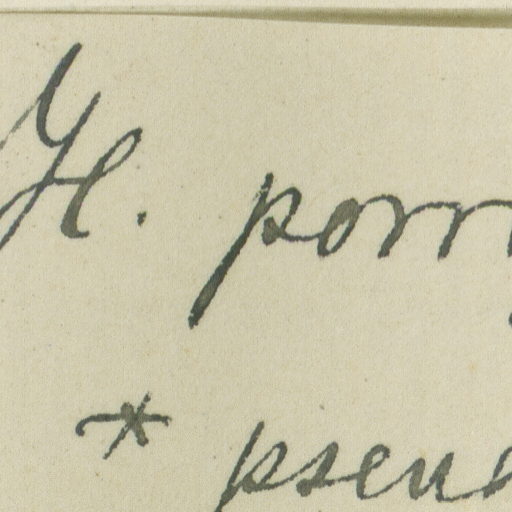 H. porr
* pseud